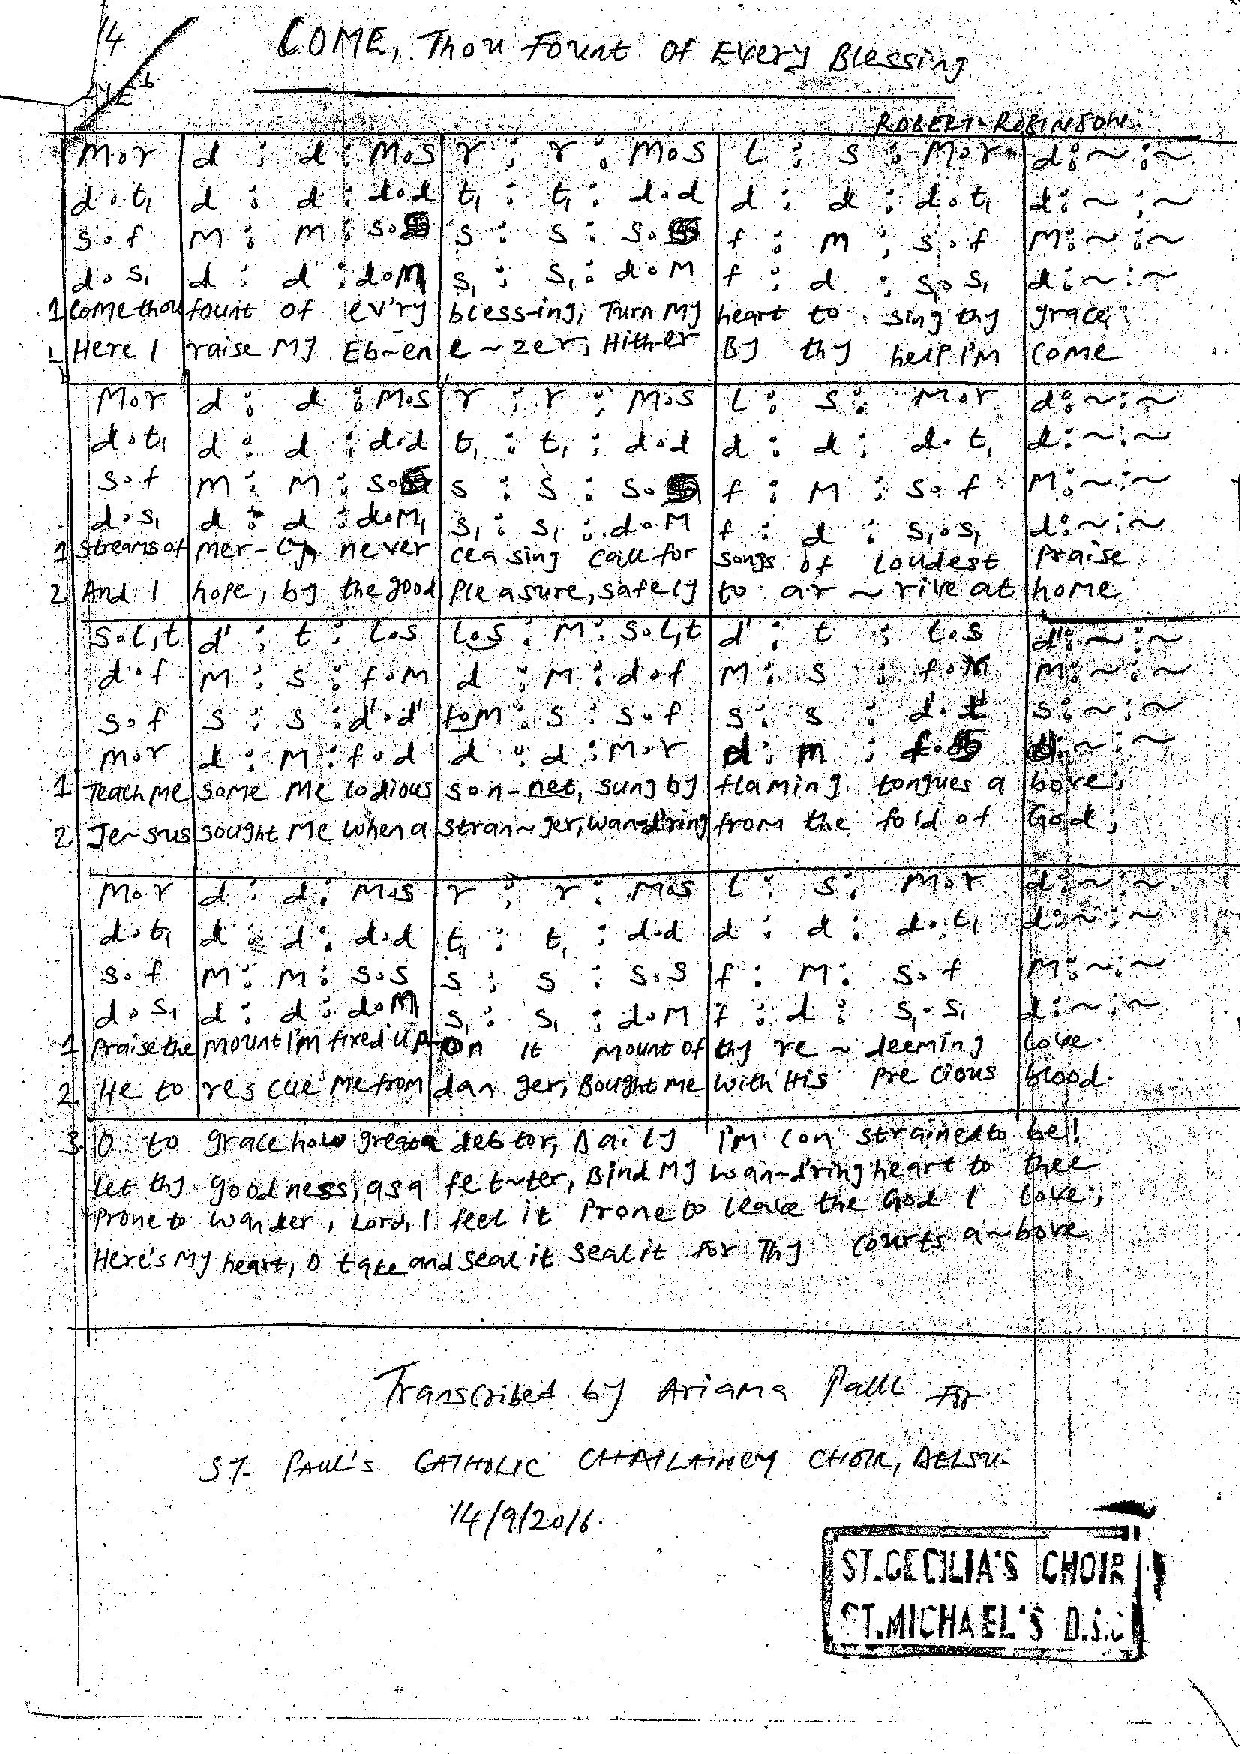 COME, Thou Fount Of Every Blessing
ROBERT ROBINSON
M.r | d : d : M.s | r : r : M.s | l : s : M.r | d : ~ : ~
d.t₁ | d : d : d.d | t₁ : t₁ : d.d | d : d : d.t₁ | d : ~ : ~
s.f | M : M : s. | s : s : s. | f : M : s.f | M : ~ : ~
d.s₁ | d : d : d.M | s₁ : s₁ : d.M | f : d : s₁.s₁ | d : ~ : ~
1 Come thou fount of ev'ry bless-ing, Turn My heart to sing thy grace,
Here I raise My Eb-en e ~ zer, Hith-er By thy help I'm Come
M.r | d : d : M.s | r : r : M.s | l : s : M.r | d : ~ : ~
d.t₁ | d : d : d.d | t₁ : t₁ : d.d | d : d : d.t₁ | d : ~ : ~
s.f | M : M : s. | s : s : s. | f : M : s.f | M : ~ : ~
d.s₁ | d : d : d.M₁ | s₁ : s₁ : d.M | f : d : s₁.s₁ | d : ~ : ~
1 Streams of mer-cy, never ceasing call for songs of loudest Praise
2 And I hope, by the good Pleasure, safely to ar ~ rive at home
s.l,t | d' : t : l.s | l.s : M : s.l,t | d' : t : l.s | d' : ~ : ~
d.f | M : s : f.M | d : M : d.f | M : s : f.M | M : ~ : ~
s.f | s : s : d'.d' | f.M : s : s.f | s : s : d'.d' | s : ~ : ~
M.r | d : M : f.d | d : d : M.r | d : m : f. | d : ~ : ~
1 Teach me some Me lodious son-net, sung by flaming tongues a bove,
2 Je~sus sought Me when a stran~ger, wand'ring from the fold of God,
M.r | d : d : M.s | r : r : M.s | l : s : M.r | d : ~ : ~
d.t₁ | d : d : d.d | t₁ : t₁ : d.d | d : d : d.t₁ | d : ~ : ~
s.f | M : M : s.s | s : s : s.s | f : M : s.f | M : ~ : ~
d.s₁ | d : d : d.M | s₁ : s₁ : d.M | f : d : s₁.s₁ | d : ~ : ~
1 Praise the mount I'm fixed up-on it mount of thy re ~ deeming love.
2 He to res cue Me from dan ger, Bought me With His Pre cious blood.
3 O to grace how great a debtor, Daily I'm con strained to be!
Let thy goodness, as a fet~ter, Bind My wan-d'ring heart to thee
Prone to wander, Lord, I feel it Prone to leave the God I love,
Here's My heart, O take and seal it seal it for Thy courts a~bove
Transcribed by Ariama Paul For
ST. PAUL'S CATHOLIC CHAPLAINCY CHOIR, DELSU.
14/9/2016.
ST.CECILIA'S CHOIR
ST.MICHAEL'S D.S.C